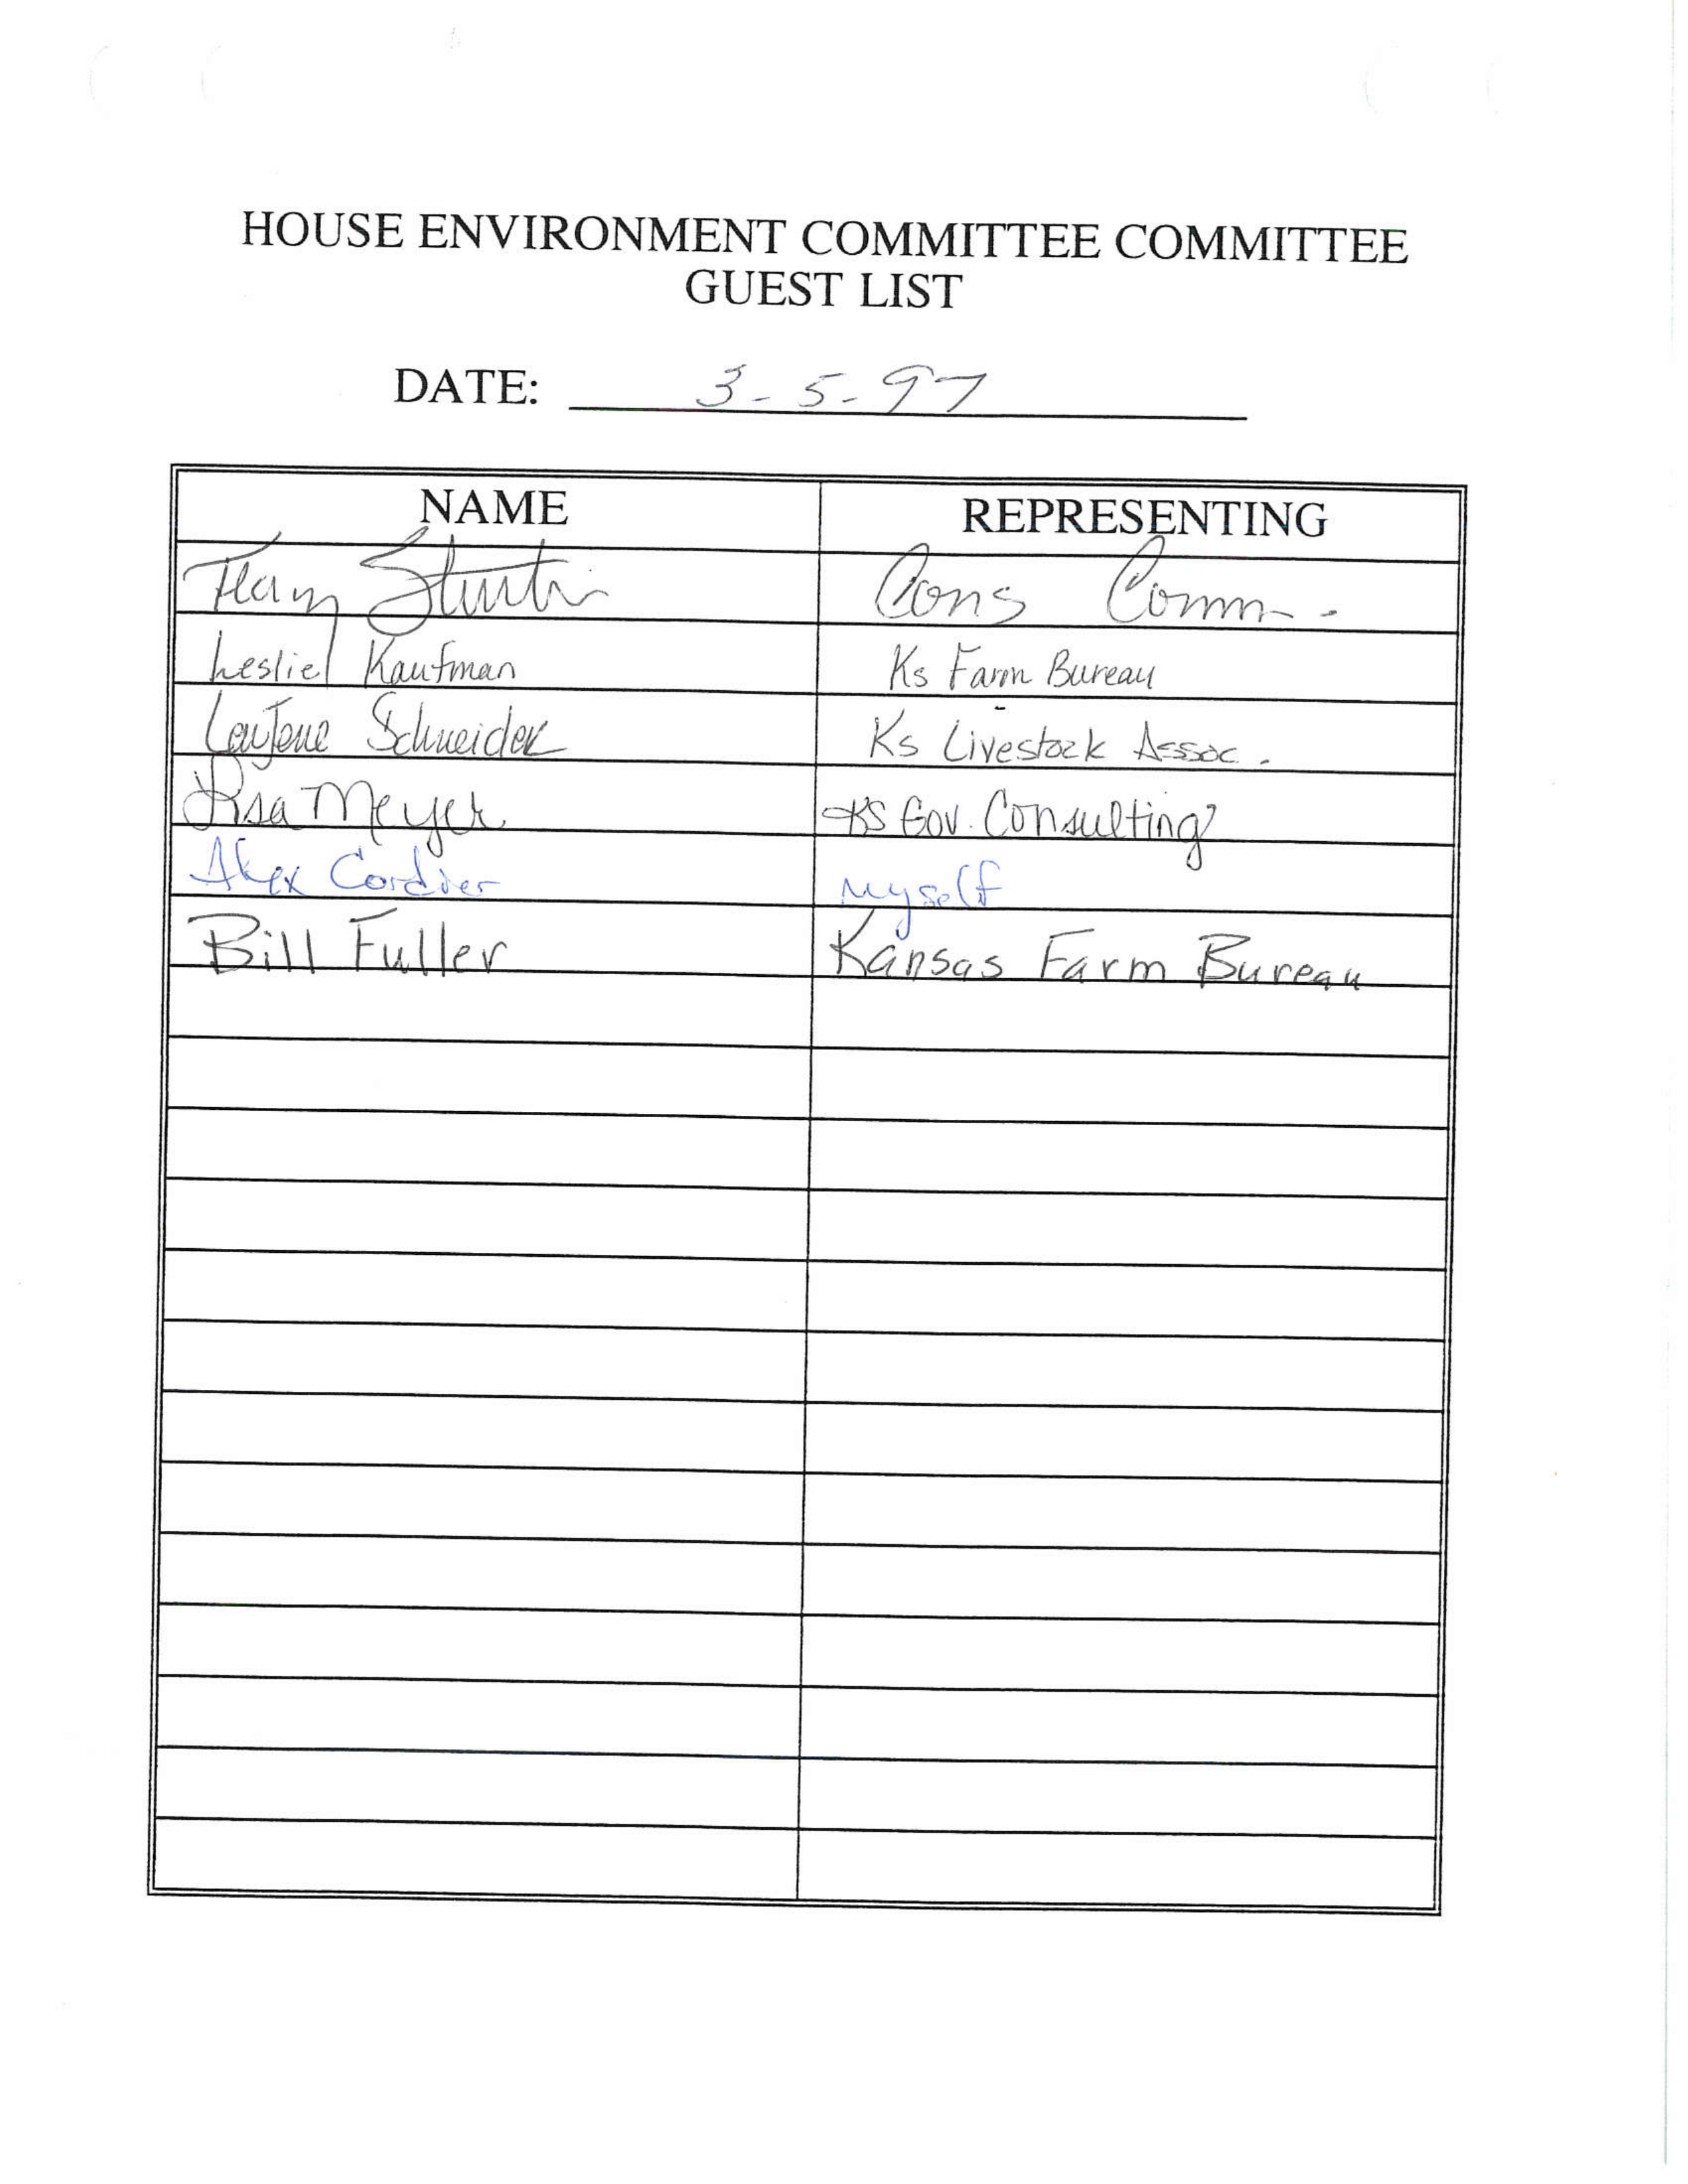 HOUSE ENVIRONMENT COMMITTEE COMMITTEE
GUEST LIST
DATE: 3-5-97
NAME REPRESENTING
Cons Comm.
Leslie Kaufman Ks Farm Bureau
Schneider Ks Livestock Assoc.
Lisa Meyer KS Gov. Consulting
Alex Cordier Myself
Bill Fuller Kansas Farm Bureau